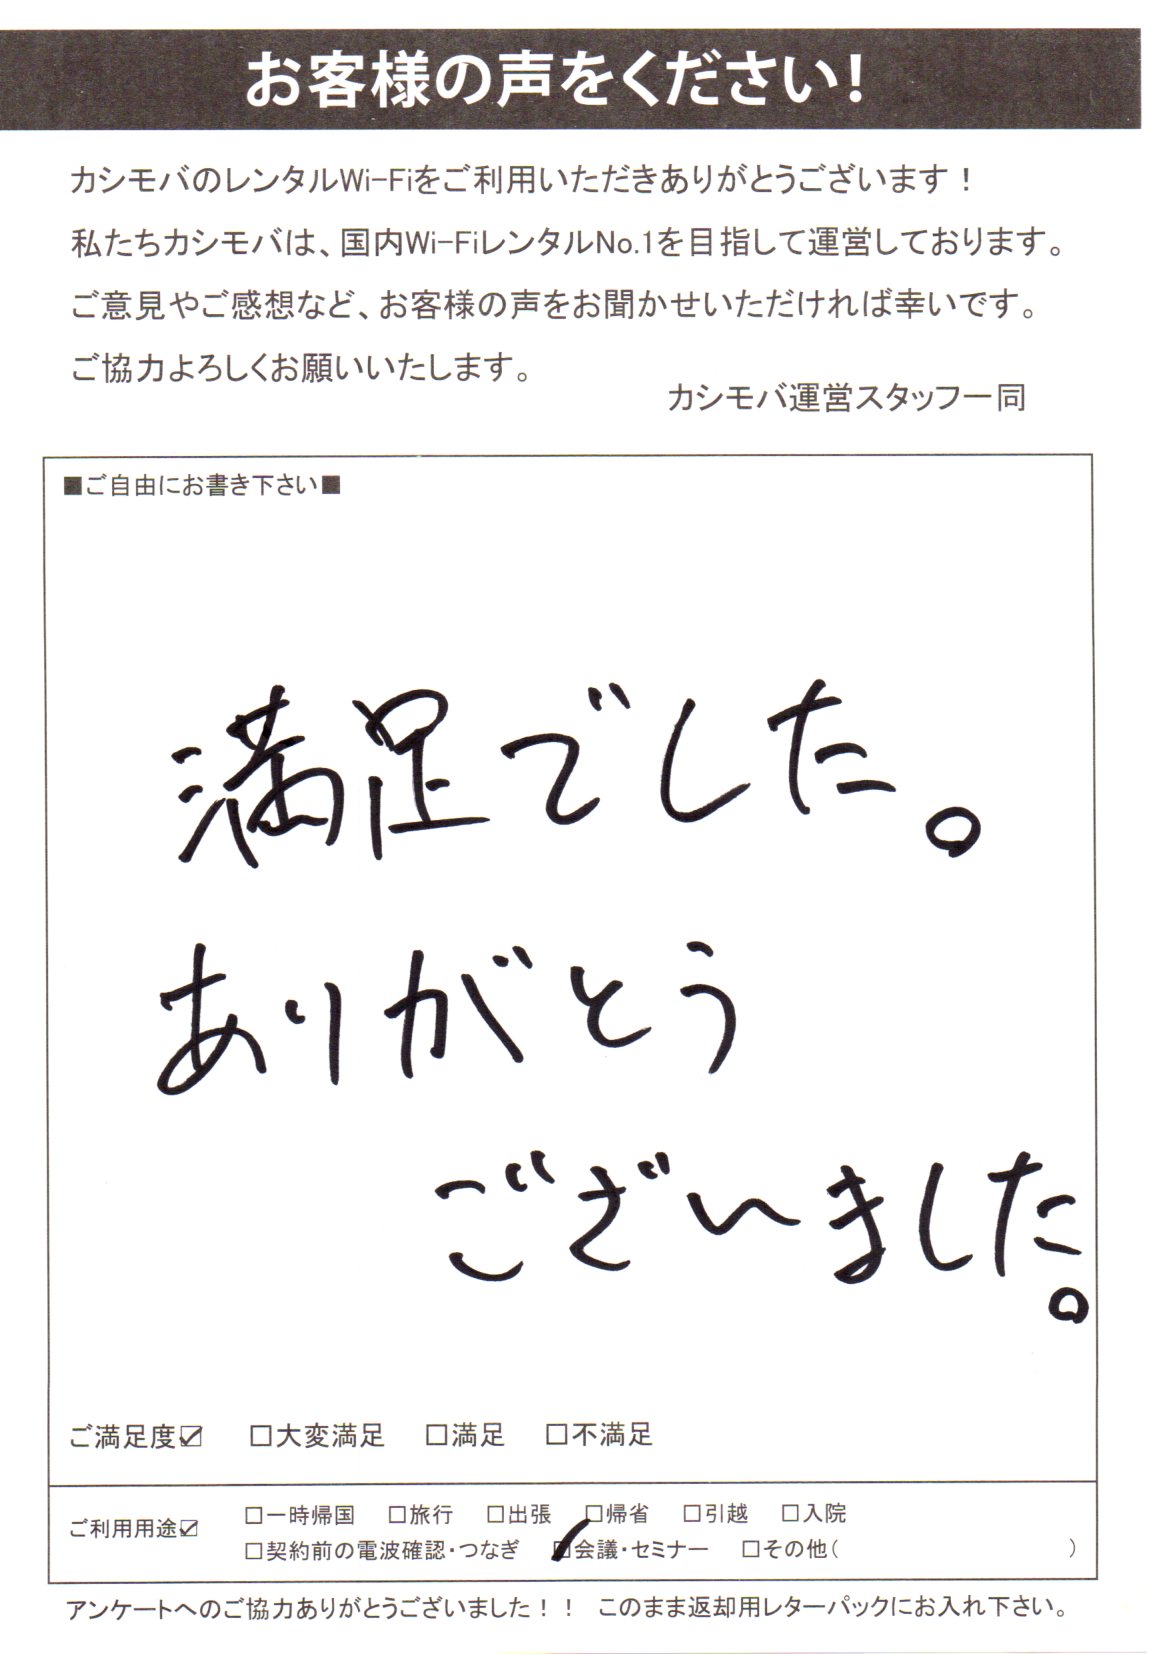 お客様の声をください!
カシモバのレンタルWi-Fiをご利用いただきありがとうございます！
私たちカシモバは、国内Wi-FiレンタルNo.1を目指して運営しております。
ご意見やご感想など、お客様の声をお聞かせいただければ幸いです。
ご協力よろしくお願いいたします。
カシモバ運営スタッフ一同
■ご自由にお書き下さい■
満足でした。
ありがとう
ございました。
ご満足度☑ □大変満足 □満足 □不満足
ご利用用途☑ □一時帰国 □旅行 □出張 □帰省 □引越 □入院
□契約前の電波確認・つなぎ ☑会議・セミナー □その他( )
アンケートへのご協力ありがとうございました！！ このまま返却用レターパックにお入れ下さい。